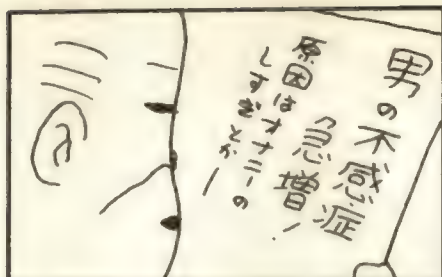 男の不感症
急増!
原因はオナニーの
しすぎとか一